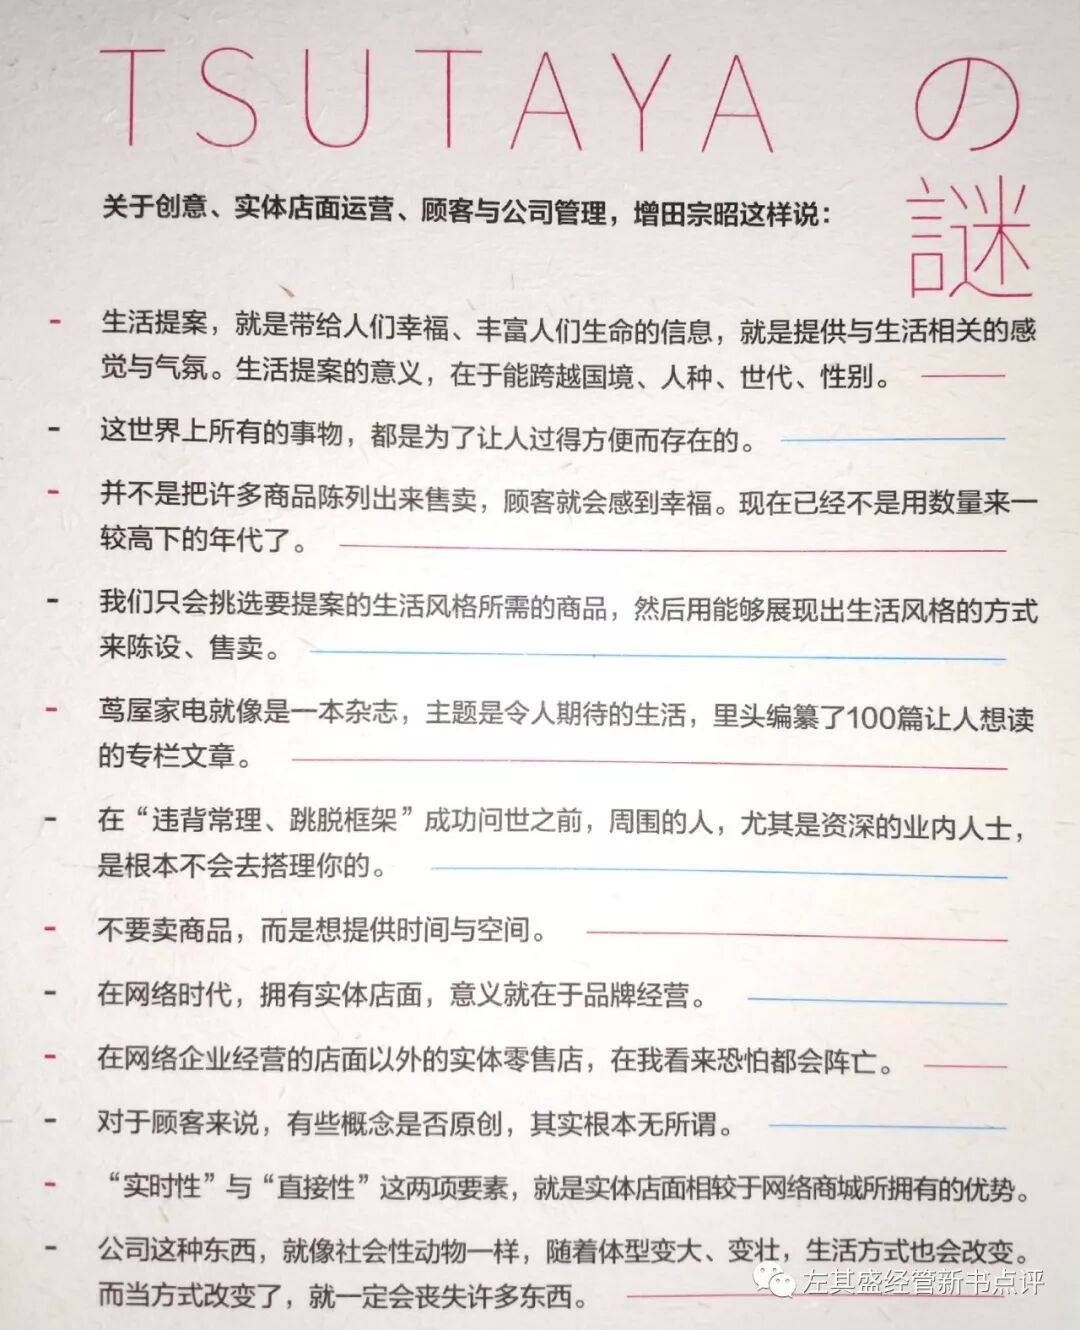 TSUTAYA の
謎
关于创意、实体店面运营、顾客与公司管理，增田宗昭这样说：
- 生活提案，就是带给人们幸福、丰富人们生命的信息，就是提供与生活相关的感
觉与气氛。生活提案的意义，在于能跨越国境、人种、世代、性别。
- 这世界上所有的事物，都是为了让人过得方便而存在的。
- 并不是把许多商品陈列出来售卖，顾客就会感到幸福。现在已经不是用数量来一
较高下的年代了。
- 我们只会挑选要提案的生活风格所需的商品，然后用能够展现出生活风格的方式
来陈设、售卖。
- 茑屋家电就像是一本杂志，主题是令人期待的生活，里头编纂了100篇让人想读
的专栏文章。
- 在“违背常理、跳脱框架”成功问世之前，周围的人，尤其是资深的业内人士，
是根本不会去搭理你的。
- 不要卖商品，而是想提供时间与空间。
- 在网络时代，拥有实体店面，意义就在于品牌经营。
- 在网络企业经营的店面以外的实体零售店，在我看来恐怕都会阵亡。
- 对于顾客来说，有些概念是否原创，其实根本无所谓。
- “实时性”与“直接性”这两项要素，就是实体店面相较于网络商城所拥有的优势。
- 公司这种东西，就像社会性动物一样，随着体型变大、变壮，生活方式也会改变。
而当方式改变了，就一定会丧失许多东西。
左其盛经管新书点评